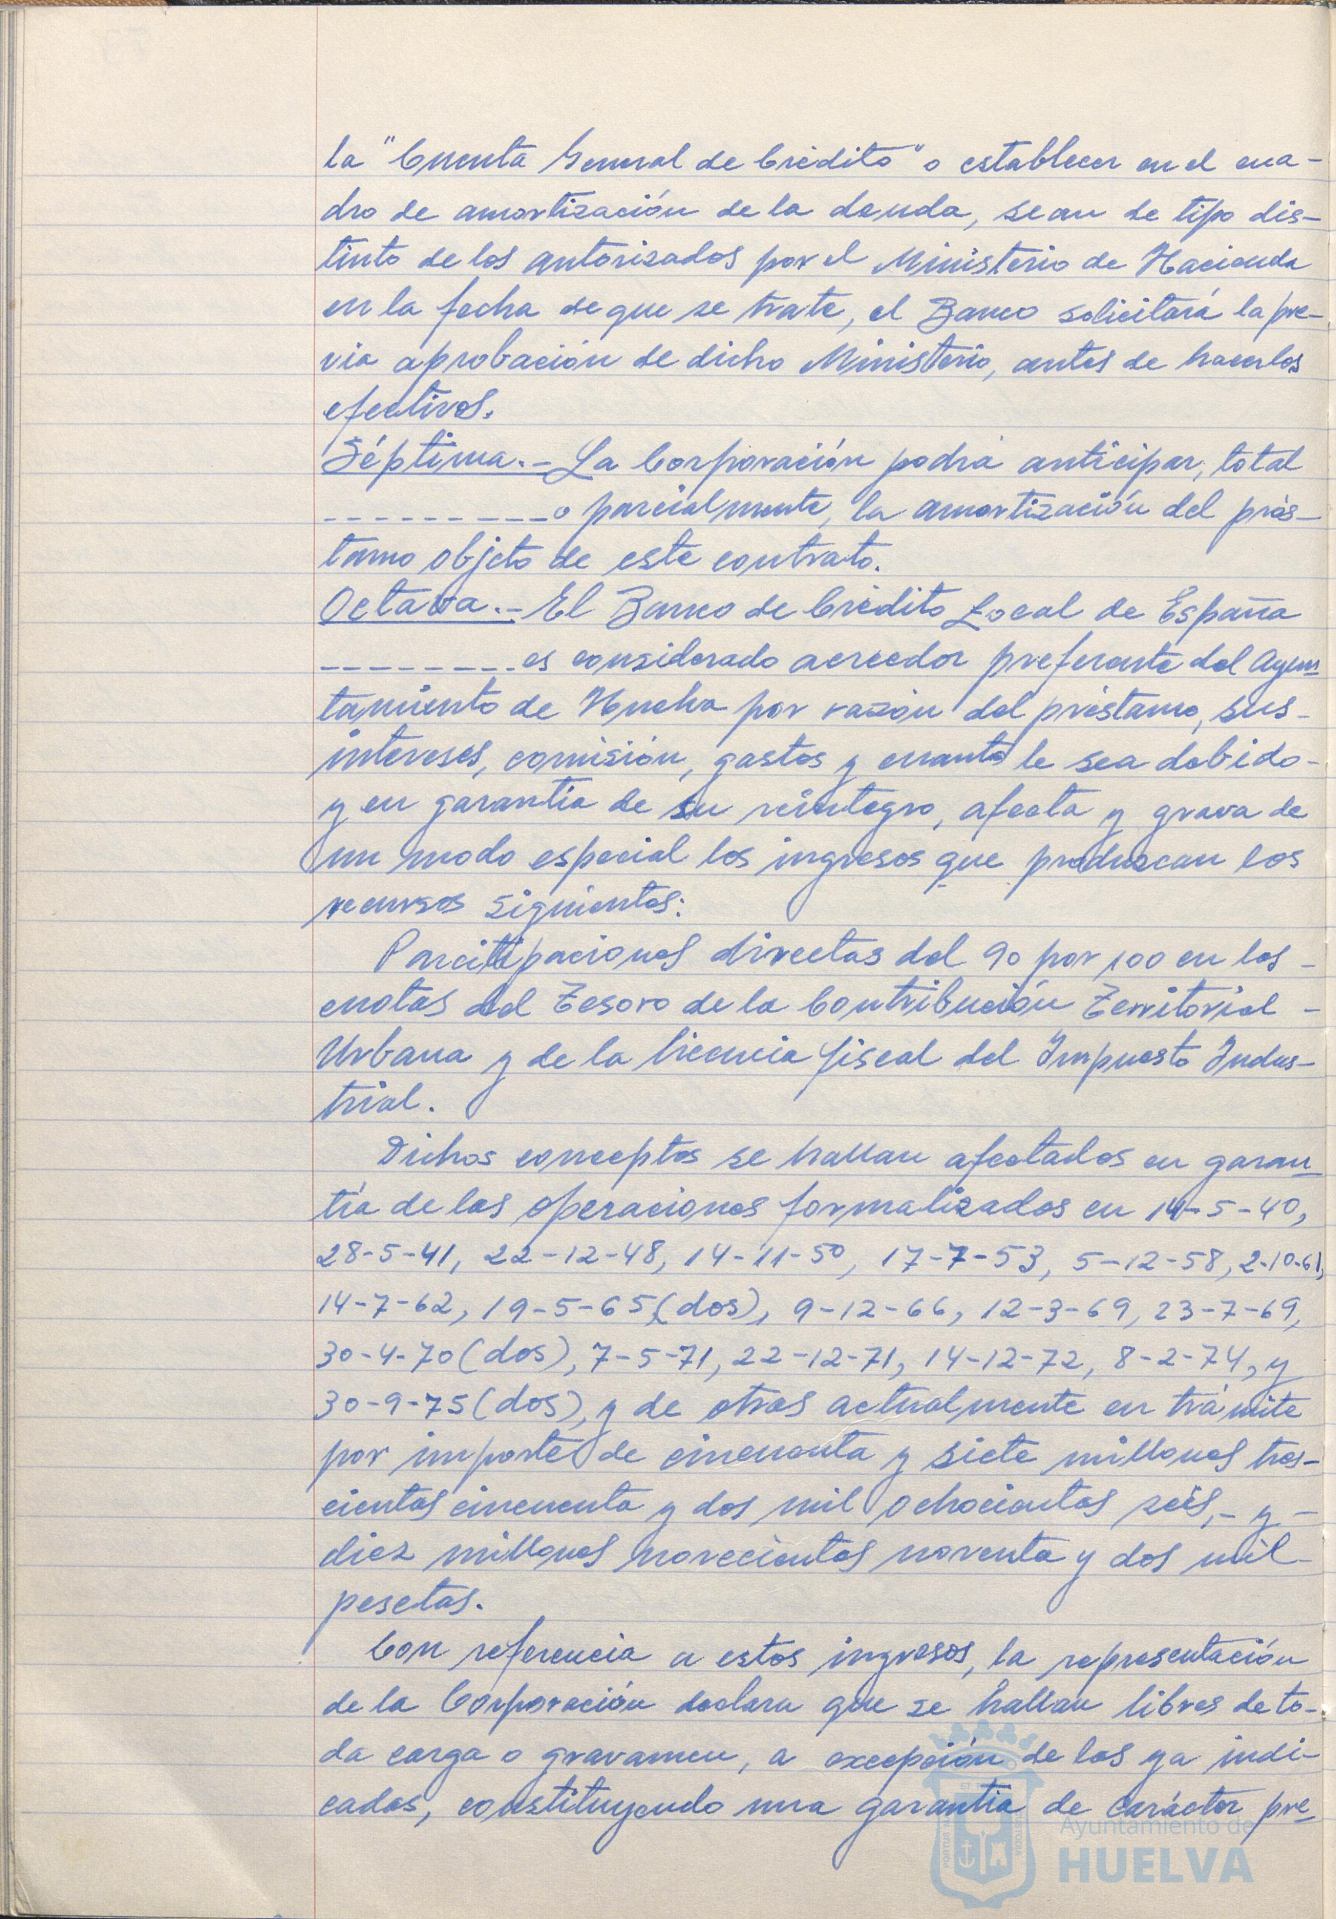 la "Cuenta General de Crédito" o establecer en el cua-
dro de amortización de la deuda, sean de tipo dis-
tinto de los autorizados por el Ministerio de Hacienda
en la fecha de que se trate, el Banco solicitará la pre-
via aprobación de dicho Ministerio, antes de hacerlos
efectivos.
Séptima.- La Corporación podrá anticipar, total
---------o parcialmente, la amortización del prés-
tamo objeto de este contrato.
Octava.- El Banco de Crédito Local de España
--------- es considerado acreedor preferente del Ayun
tamiento de Huelva por razón del préstamo, sus-
intereses, comisión, gastos y cuanto le sea debido-
y en garantía de su reintegro, afecta y grava de
un modo especial los ingresos que produzcan los
recursos siguientes:
Parcitipaciones directas del 90 por 100 en las -
cuotas del Tesoro de la Contribución Territorial -
Urbana y de la licencia fiscal del Impuesto Indus-
trial.
Dichos conceptos se hallan afectados en garan
tía de las operaciones formalizadas en 14-5-40,
28-5-41, 22-12-48, 14-11-50, 17-7-53, 5-12-58, 2-10-61,
14-7-62, 19-5-65 (dos), 9-12-66, 12-3-69, 23-7-69,
30-4-70 (dos), 7-5-71, 22-12-71, 14-12-72, 8-2-74, y
30-9-75 (dos), y de otras actualmente en trámite
por importe de cincuenta y siete millones tres-
cientas cincuenta y dos mil ochocientas seis,- y -
diez millones novecientas noventa y dos mil-
pesetas.
Con referencia a estos ingresos, la representación
de la Corporación declara que se hallan libres de to-
da carga o gravamen, a excepción de las ya indi-
cadas, constituyendo una garantía de carácter pre-
Ayuntamiento de
HUELVA